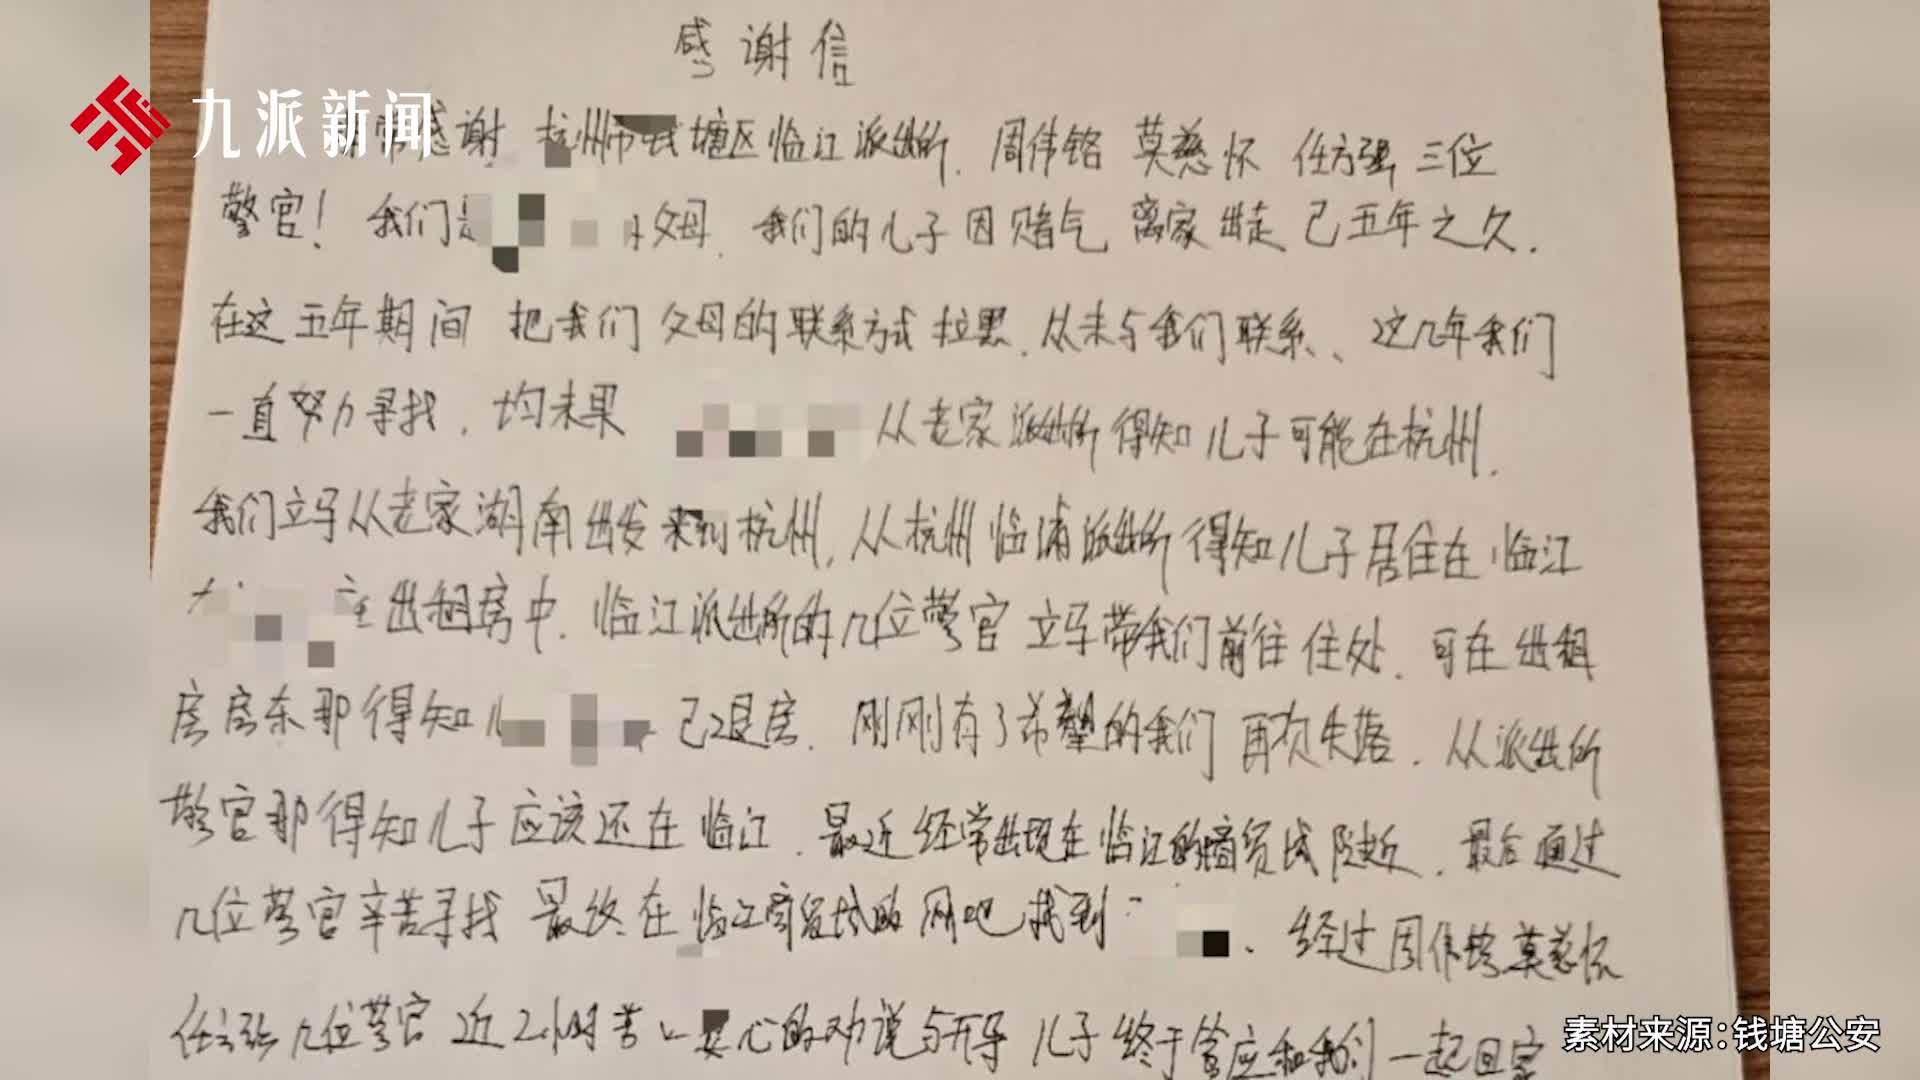 感谢信
九派新闻
感谢 杭州市钱塘区临江派出所. 周伟铭 莫慈怀 任方强 三位
警官! 我们 父母. 我们的儿子因赌气 离家出走 已五年之久.
在这五年期间 把我们 父母的联系方式拉黑. 从未与我们联系、这几年我们
一直努力寻找. 均未果 从老家派出所得知儿子可能在杭州.
我们立马从老家湖南出发来到杭州. 从杭州临浦派出所得知儿子居住在临江
出租房中. 临江派出所的几位警官立马带我们前往住处. 可在出租
房房东那得知儿 已退房. 刚刚有了希望的我们 再次失落. 从派出所
警官那得知儿子应该还在临江. 最近经常出现在临江的商贸城附近. 最后通过
几位警官辛苦寻找 最终在临江商贸城的网吧找到 . 经过周伟铭莫慈怀
任方强几位警官近2小时苦口婆心的劝说与开导 儿子终于答应和我们一起回家
素材来源:钱塘公安